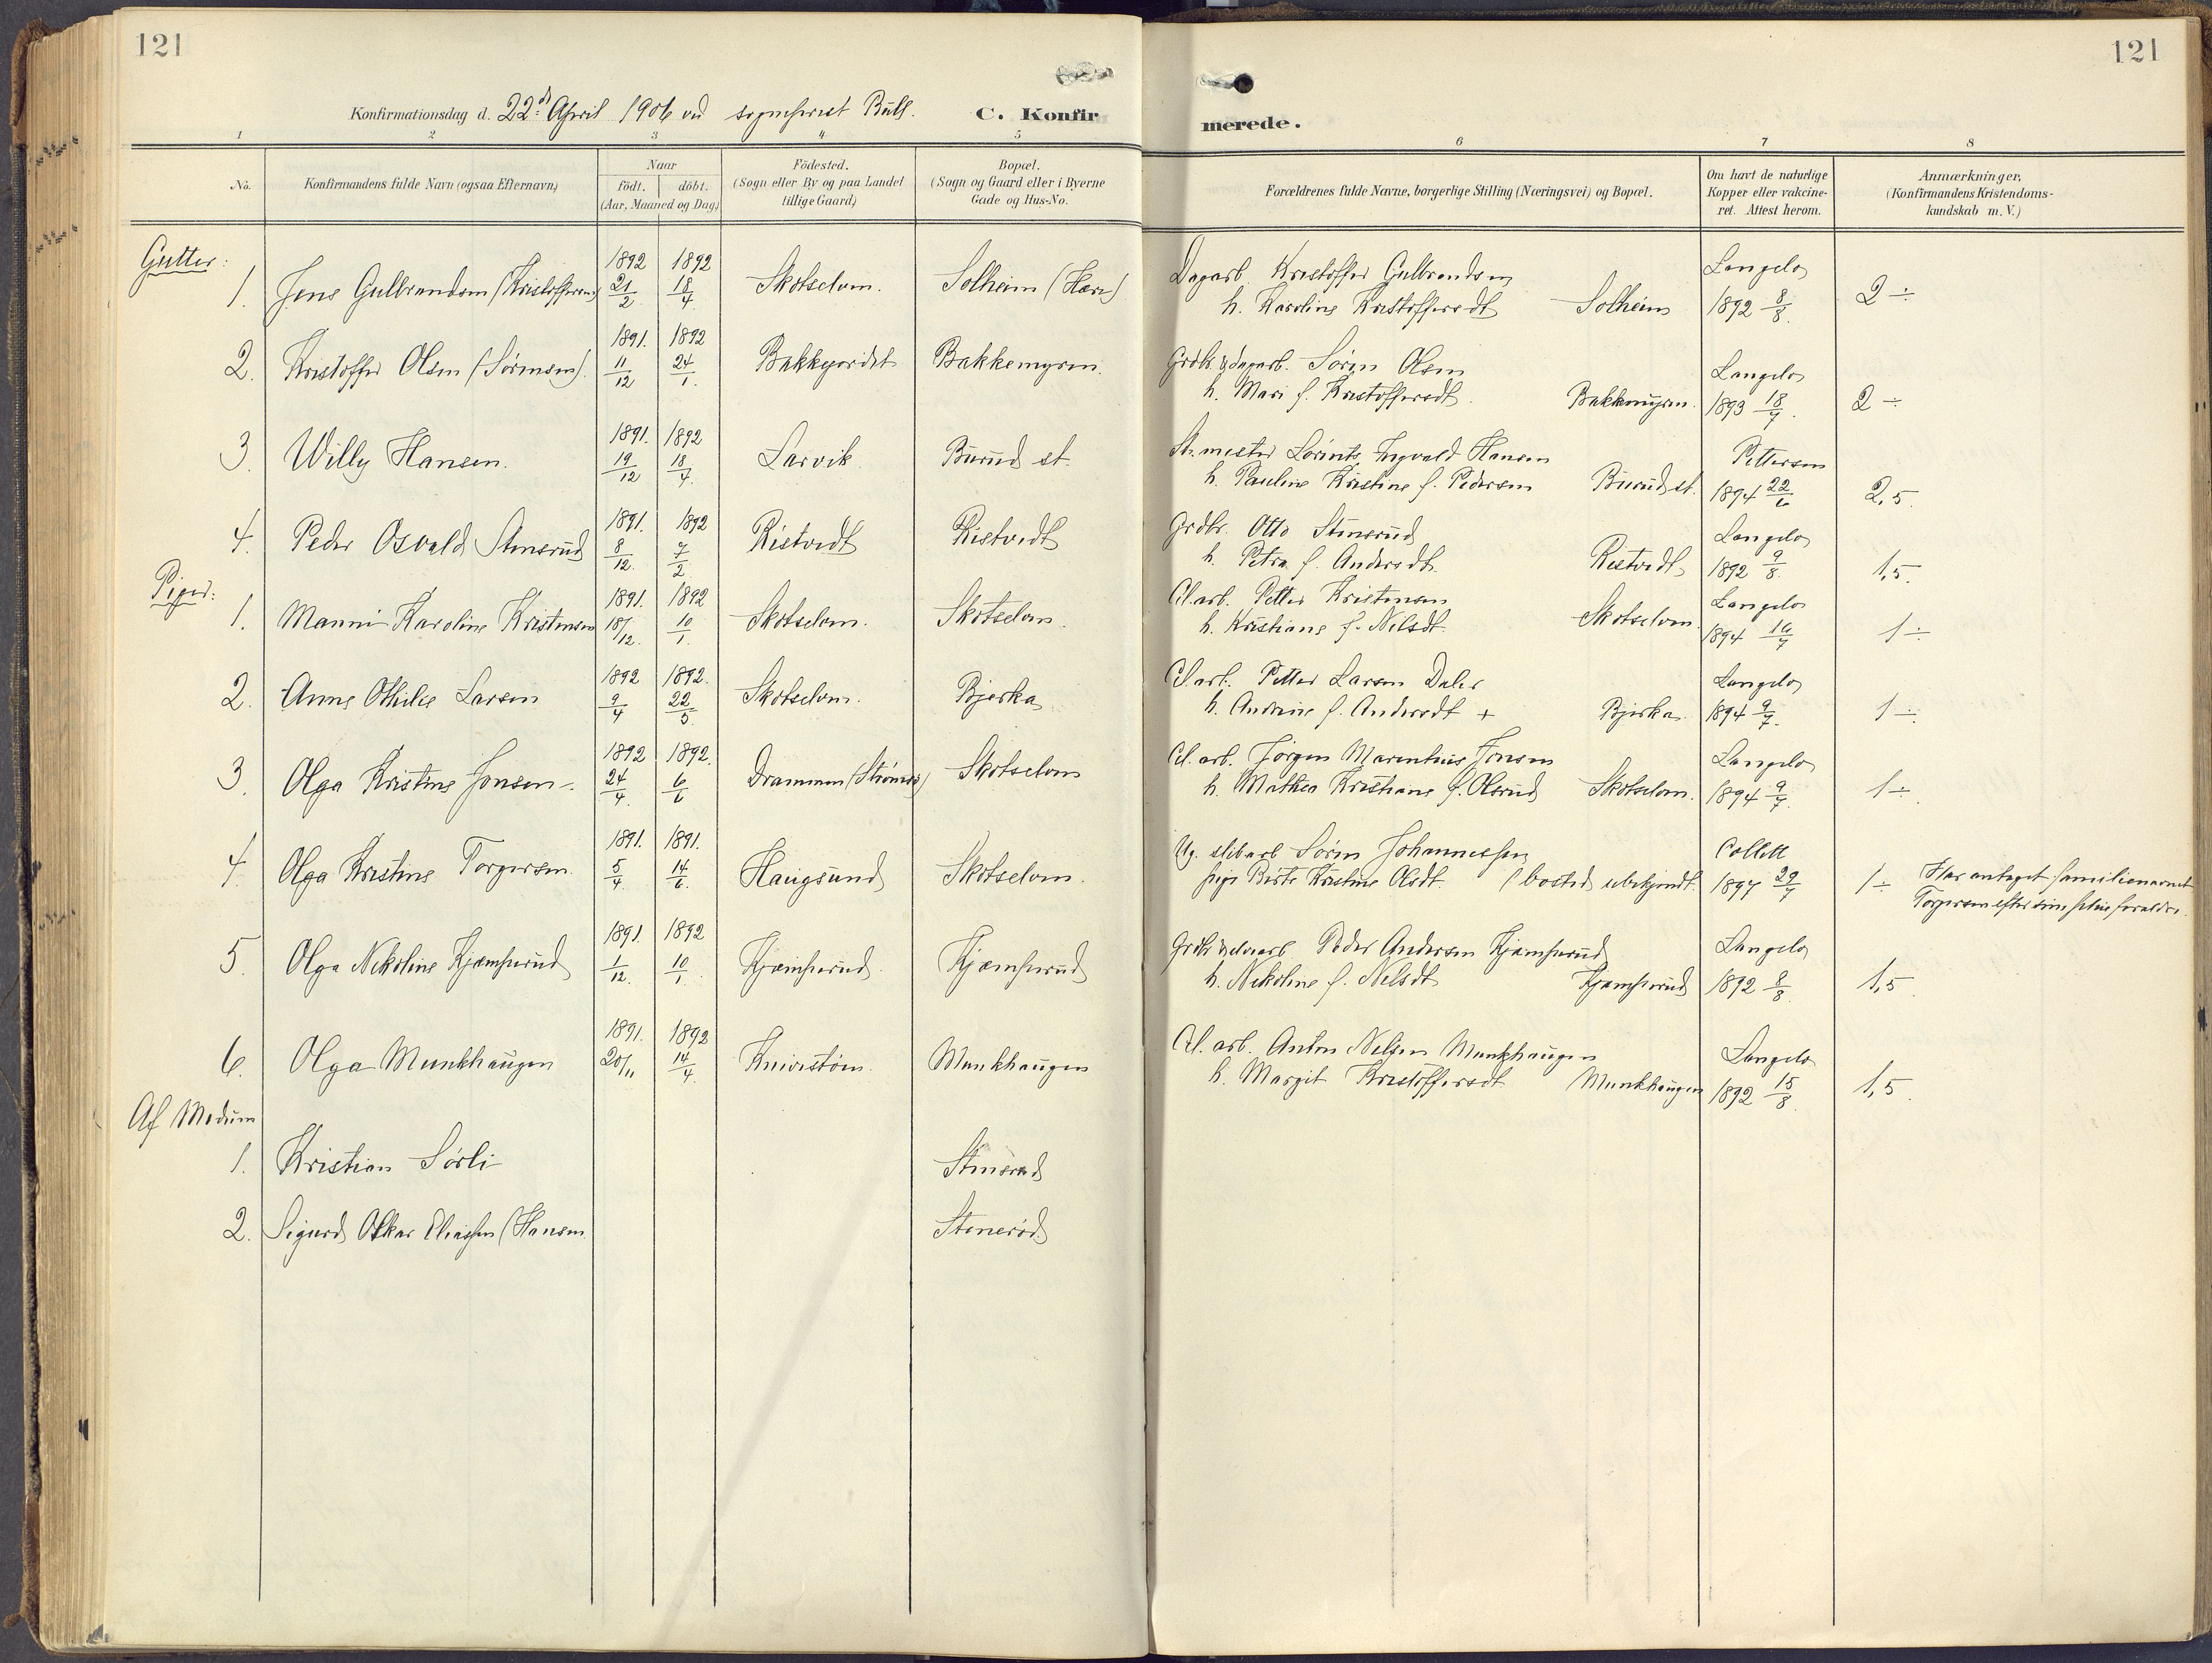 121
121
Konfirmationsdag d. 22d April 1906 ved sogneprest Bull.
C. Konfirmerede.
1 2 3 4 5 6 7 8
No.
Konfirmandens fulde Navn (ogsaa Efternavn)
Naar
født. døbt.
(Aar, Maaned og Dag)
Fødested.
(Sogn eller By og paa Landet
tillige Gaard)
Bopæl.
(Sogn og Gaard eller i Byerne
Gade og Hus-No.
Forældrenes fulde Navne, borgerlige Stilling (Næringsvei) og Bopæl.
Om havt de naturlige
Kopper eller vakcine-
ret. Attest herom.
Anmærkninger,
(Konfirmandens Kristendoms-
kundskab m. V.)
Gutter:
1. Jens Gulbrandsen (Kristoffersen) 1892 21/2 1892 18/4 Skotselven. Solheim
Dagarb. Kristoffer Gulbrandsen
h. Karoline Kristoffersdt Solheim
Langelo
1892 8/8.
2 ÷
2. Kristoffer Olsen (Sørensen). 1891. 11/12 1892 24/1. Bakkejordet Bakkemyren.
Grdbr. & dagarb. Søren Olsen
h. Mari f. Kristoffersdt. Bakkemyren.
Langelo
1893 18/7.
2 ÷
3. Willy Hansen. 1891. 19/12 1892 18/4. Larvik Burud st.
St. mester Lorents Ingvald Hansen
h. Pauline Kristine f. Pedersen Burud st.
Pettersen
1894 22/6
2,5.
4. Peder Osvald Stensrud 1891. 8/12. 1892 7/2 Ristvedt Ristvedt
Grdbr. Otto Stensrud
h. Petra f. Andersdt. Ristvedt
Langelo
1892 9/8.
1,5.
Piger:
1. Manni Karoline Kristensen 1891. 18/12. 1892 10/1. Skotselven. Skotselven.
Cel. arb. Petter Kristensen
h. Kristiane f. Nilsdt. Skotselven.
Langelo
1894 16/7
1 ÷
2. Anne Othilie Larsen 1892 9/4 1892. 22/5 Skotselven. Bjerka
Cel. arb. Petter Larsen Daler
h. Andrine f. Andersdt + Bjerka
Langelo
1894 9/7.
1 ÷
3. Olga Kristine Jonsen. 1892 24/4. 1892. 6/6 Drammen (Strømsø) Skotselven
Cel. arb. Jørgen Marentius Jonsen
h. Mathea Kristiane f. Olsrud Skotselven.
Langelo
1894 9/7.
1 ÷
4. Olga Kristine Torgersen. 1891. 5/4. 1891. 14/6. Haugsund Skotselven.
Ug. slibarb Søren Johannessen
pige Berte Kristine Olsdt. (bosted ubekjendt.
Collett
1897 29/7
1 ÷ Har antaget familienavnet
Torgersen efter sine foreldre.
5. Olga Nikoline Kjæmperud 1891. 1/12. 1892 10/1. Kjæmperud. Kjæmperud
Grdbr & elvearb. Peder Andersen Kjæmperud
h. Nikoline f. Nilsdt Kjæmperud
Langelo
1892 8/8.
1,5.
6. Olga Munkhaugen 1891. 20/11 1892 14/4. Knivestøen. Munkhaugen
Cel. arb. Anton Nilsen Munkhaugen
h. Margit Kristoffersdt Munkhaugen
Langelo
1892 15/8.
1,5.
Af Modum
1. Kristian Sørli Stensrud
2. Sigurd Oskar Eliassen (Hansen Stenerød